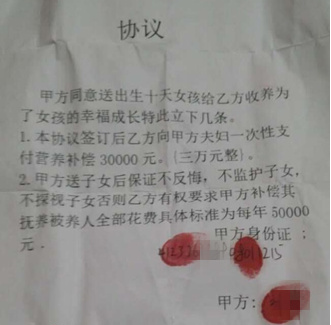 协议
甲方同意送出生十天女孩给乙方收养为
了女孩的幸福成长特此立下几条。
1.本协议签订后乙方向甲方夫妇一次性支
付营养补偿 30000 元。(三万元整)。
2.甲方送子女后保证不反悔，不监护子女，
不探视子女否则乙方有权要求甲方补偿其
抚养被养人全部花费具体标准为每年 50000
元.
甲方身份证：
甲方: